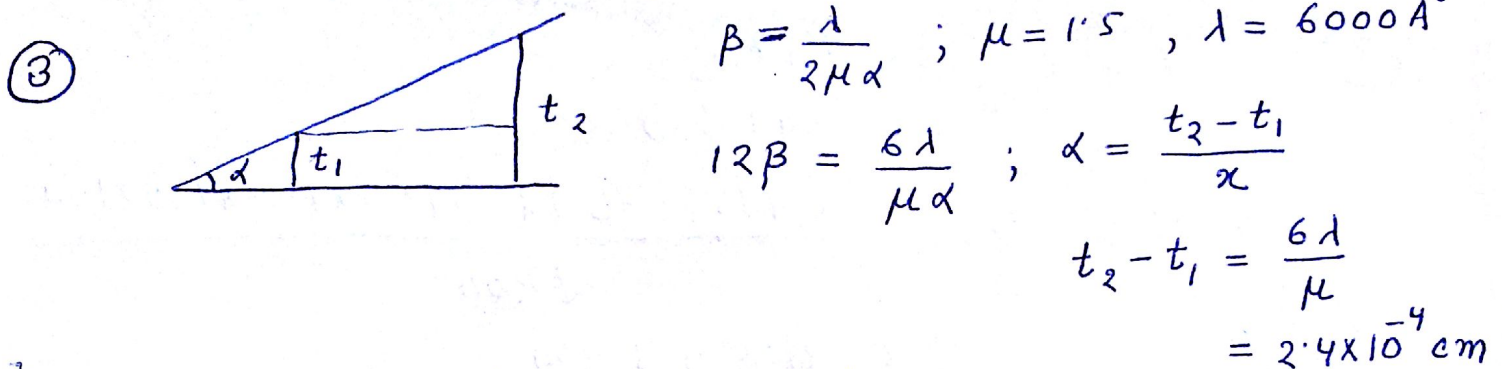 ③
α t₁ t₂
β = λ / 2μα ; μ = 1·5 , λ = 6000 A°
12β = 6λ / μα ; α = t₂ - t₁ / x
t₂ - t₁ = 6λ / μ
= 2·4 × 10⁻⁴ cm